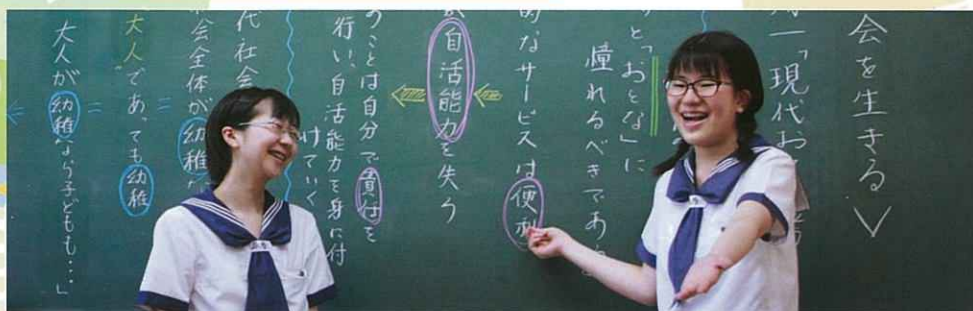 会を生きる＞
一「現代お
と「おとな」に
憧れるべきであ
なサービスは便利
自活能力を失う
うことは自分で責任を
行い、自活能力を身に付
けていく
代社会
会全体が幼稚
大人”であっても幼稚
大人が幼稚なら子どもも…」